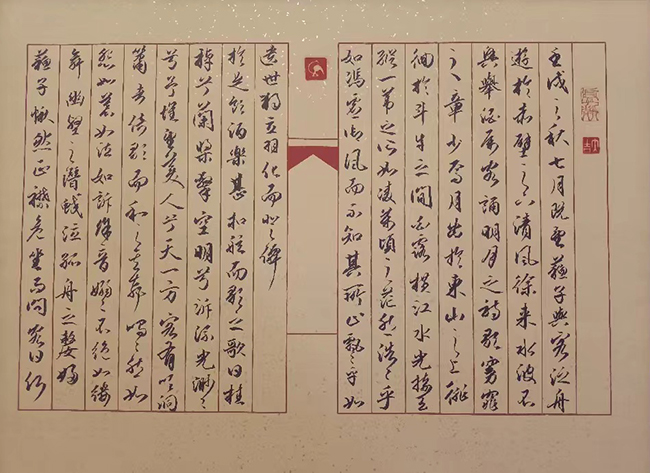 壬戌之秋七月既望蘇子與客泛舟
遊於赤壁之下清風徐來水波不
興舉酒屬客誦明月之詩歌窈窕
之章少焉月出於東山之上徘
徊於斗牛之間白露橫江水光接天
縱一葦之所如凌萬頃之茫然浩々乎
如馮虛御風而不知其所止飄々乎如
遺世獨立羽化而登仙
於是飲酒樂甚扣舷而歌之歌曰桂
棹兮蘭槳擊空明兮泝流光渺々
兮予懷望美人兮天一方客有吹洞
簫者倚歌而和之其聲嗚々然如
怨如慕如泣如訴餘音嫋々不絕如縷
舞幽壑之潛蛟泣孤舟之嫠婦
蘇子愀然正襟危坐而問客曰何